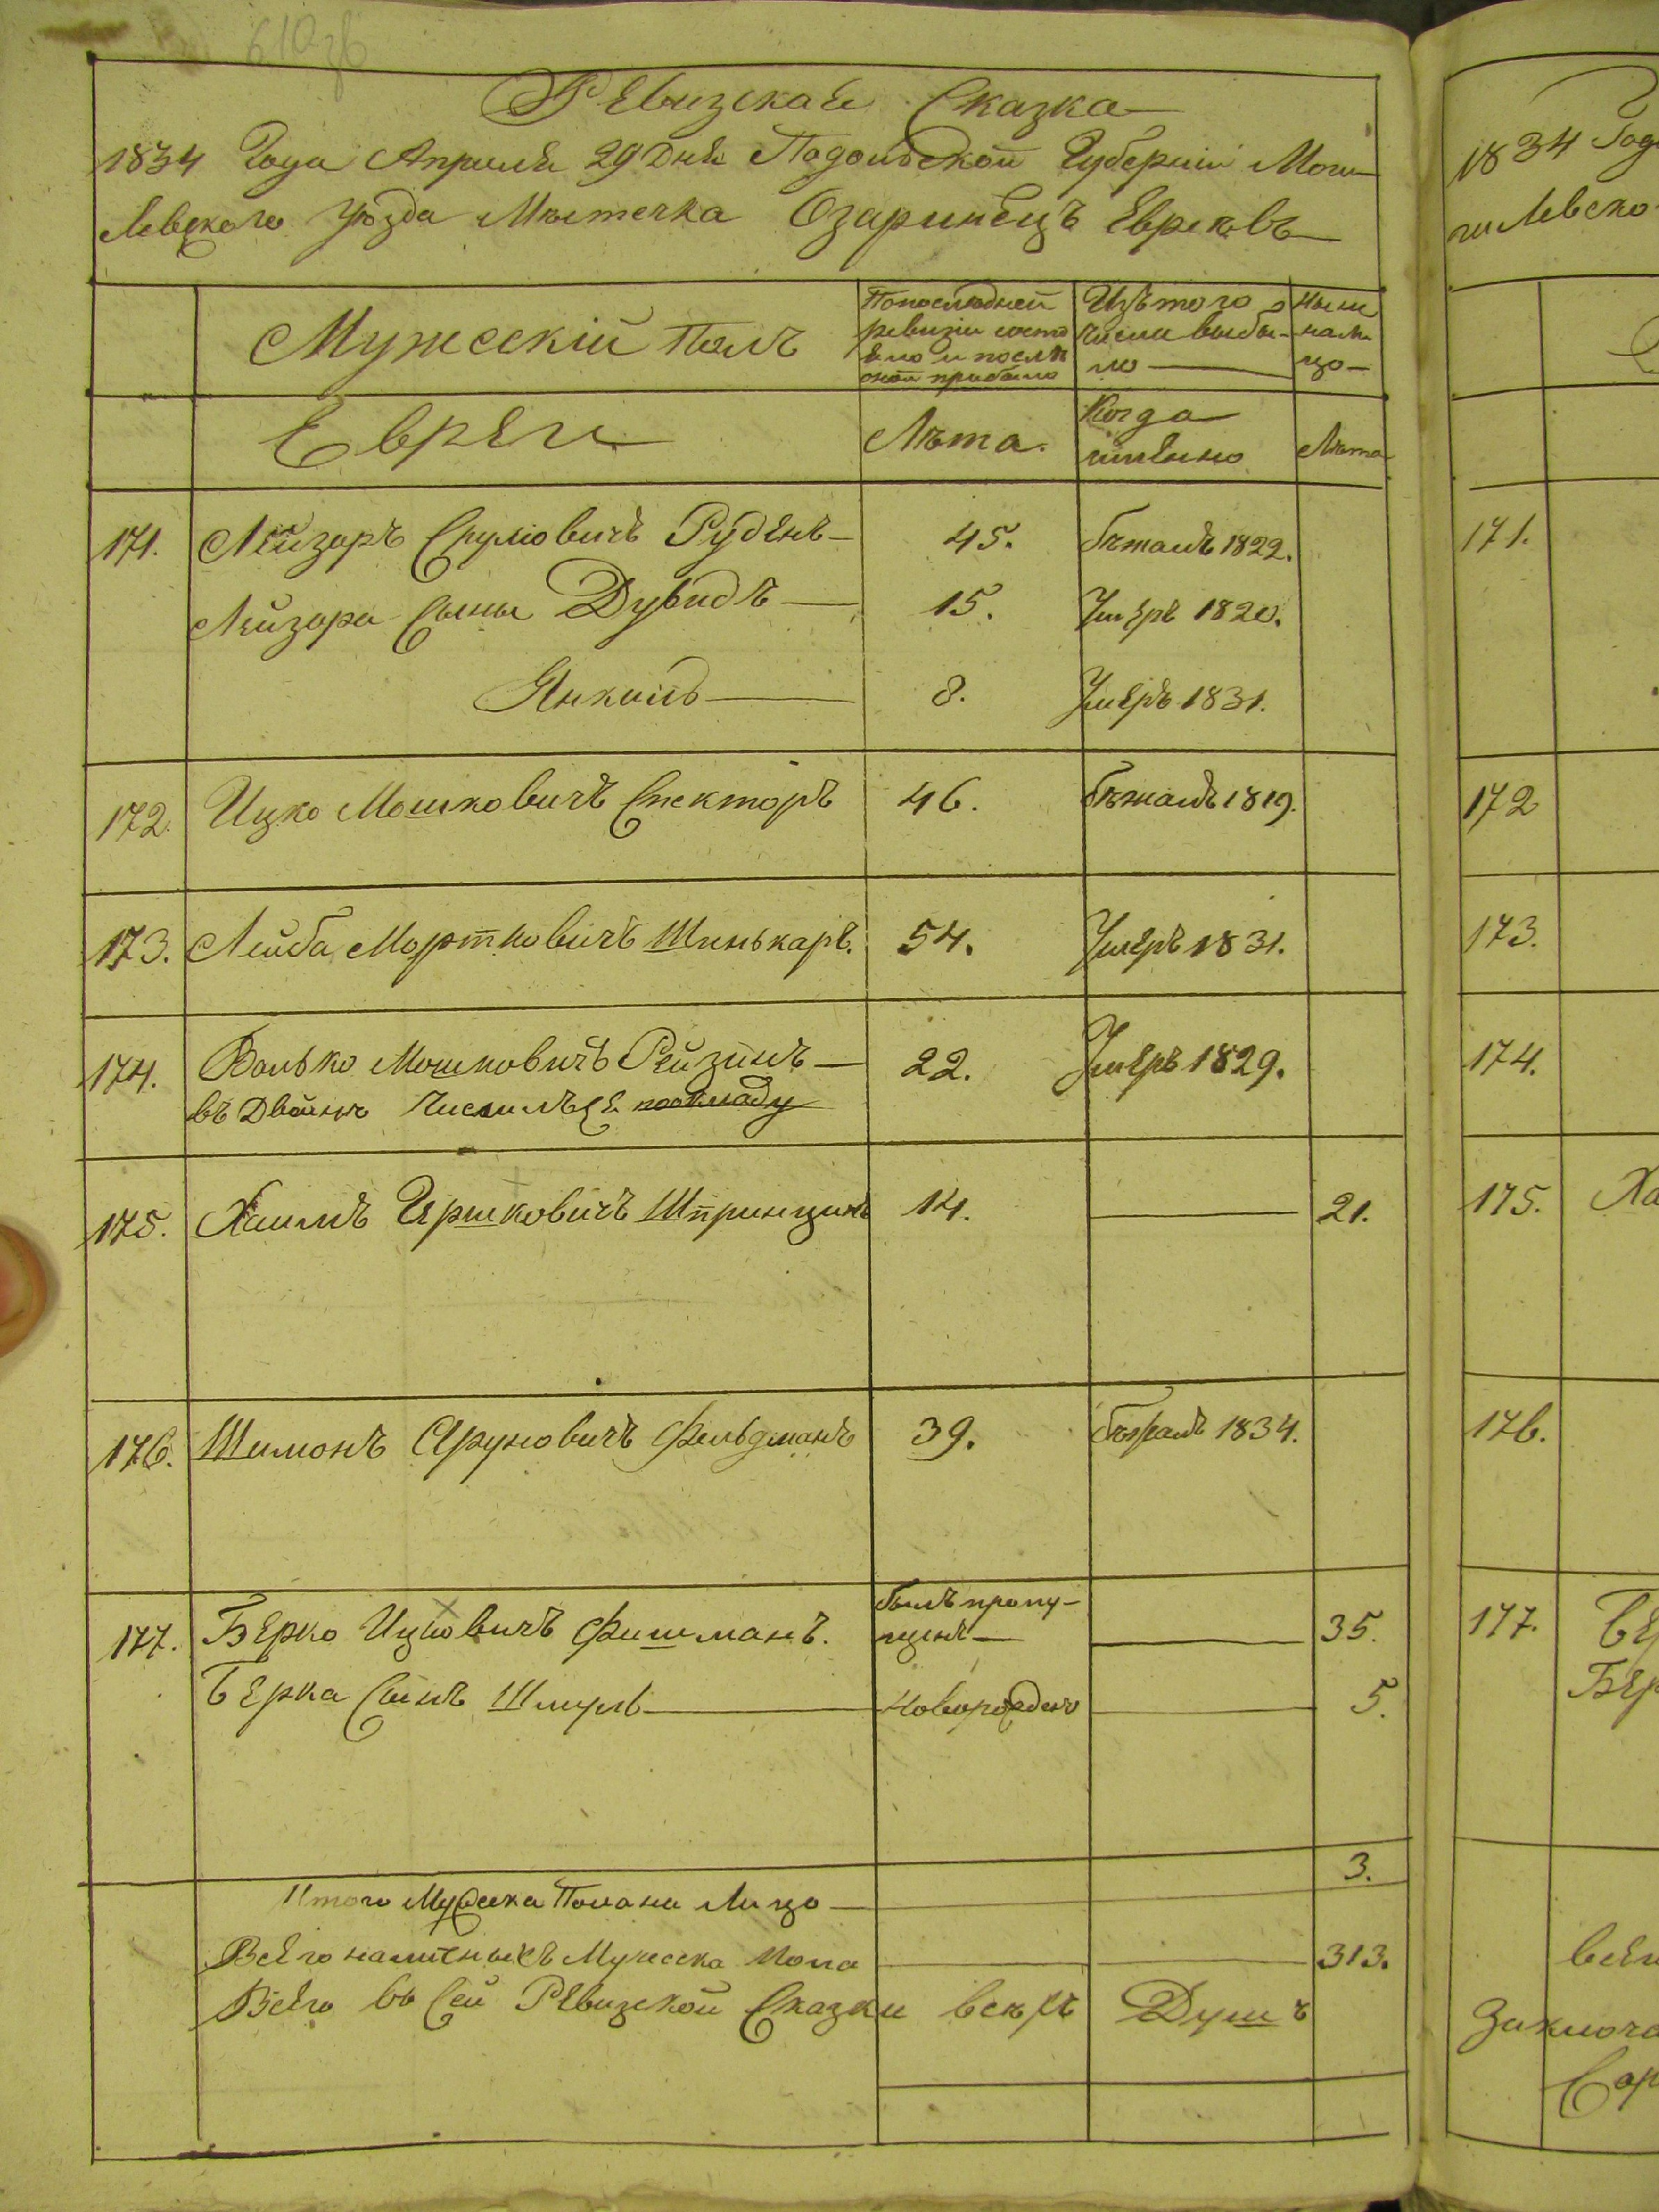 610 зв
Ревизская Сказка
1834 Года Апреля 29 Дня Подольской Губернии Моги
левского Уѣзда Мѣстечка Озаринецъ Евреювъ
Мужескій Полъ
Попослѣдней ревизіи состо яло и послѣ оной прибыло
Изъ того числа выбы- ло
Ныне нали цо
Евреи
Лѣта.
Когда имянно
Лѣта
171. Лейзоръ Сруліовичъ Рудянъ 45. бѣжалъ 1822.
Лейзора Сыны Дувидъ 15. Умеръ 1820.
Янкель 8. Умеръ 1831.
172. Ицко Мошковичъ Спекторъ 46. бѣжалъ 1819.
173. Лейба Мортковичъ Шинькаръ. 54. Умеръ 1831.
174. Волько Мошковичъ Рейзинъ 22. Умеръ 1829.
въ Двойнѣ числился поокладу
175. Хаимъ Гершковичъ Шпринцинъ 14. 21.
176. Шимонъ Аруновичъ Фельдманъ 39. бѣжалъ 1834.
177. Берко Ицковичъ Фишманъ. былъ пропу- щенъ 35.
Берка Сынъ Шмуль Новорожденъ 5.
3.
Итого Мужеска Пола на Лицо
Всего наличныхъ Мужеска Пола 313.
Всего въ Сей Ревизской Сказки всехъ Душъ
1834 Год
ги левско
171.
172
173.
174.
175. Ха
176.
177. Бе
Бер
всего
Заключа